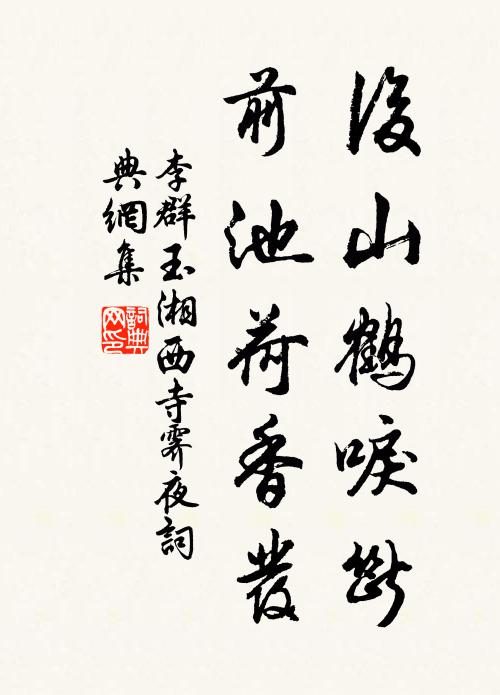 後山鶴唳斷
前池荷香發
李群玉湘西寺霽夜詞
典網集
詞典
网印